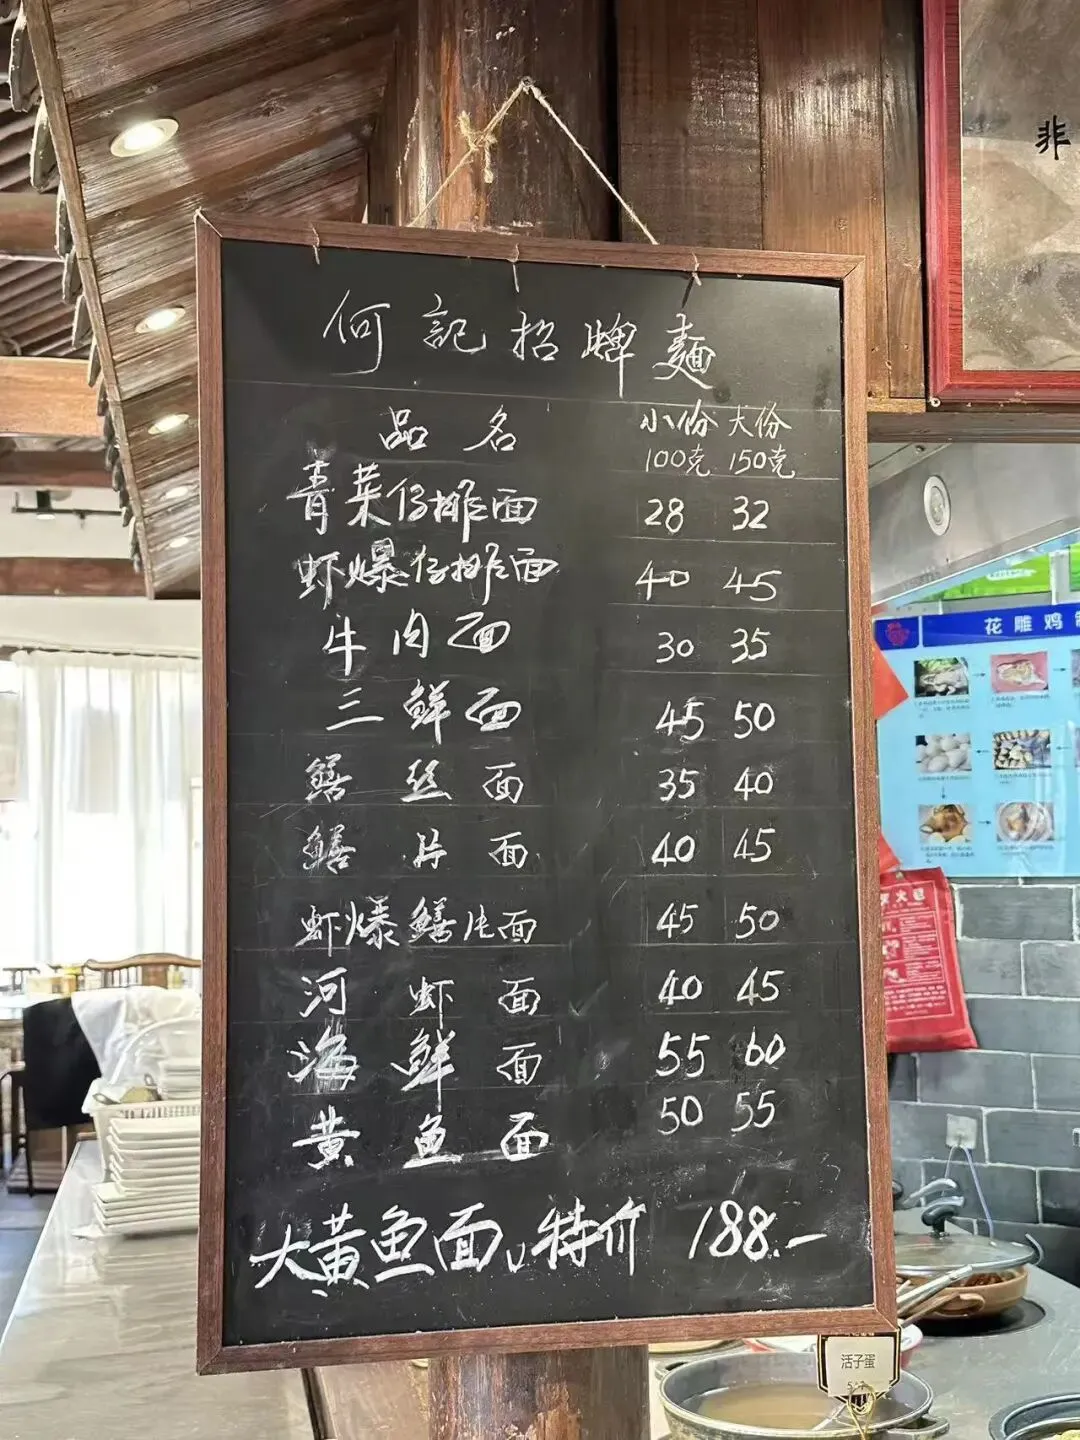 非
何記招牌麵
品名 小份 大份
100克 150克
青菜仔排面 28 32
虾爆仔排面 40 45
牛肉面 30 35
三鲜面 45 50
鳝丝面 35 40
鳝片面 40 45
虾爆鳝片面 45 50
河虾面 40 45
海鲜面 55 60
黄鱼面 50 55
大黄鱼面,特价 188.-
花雕鸡制
活子蛋